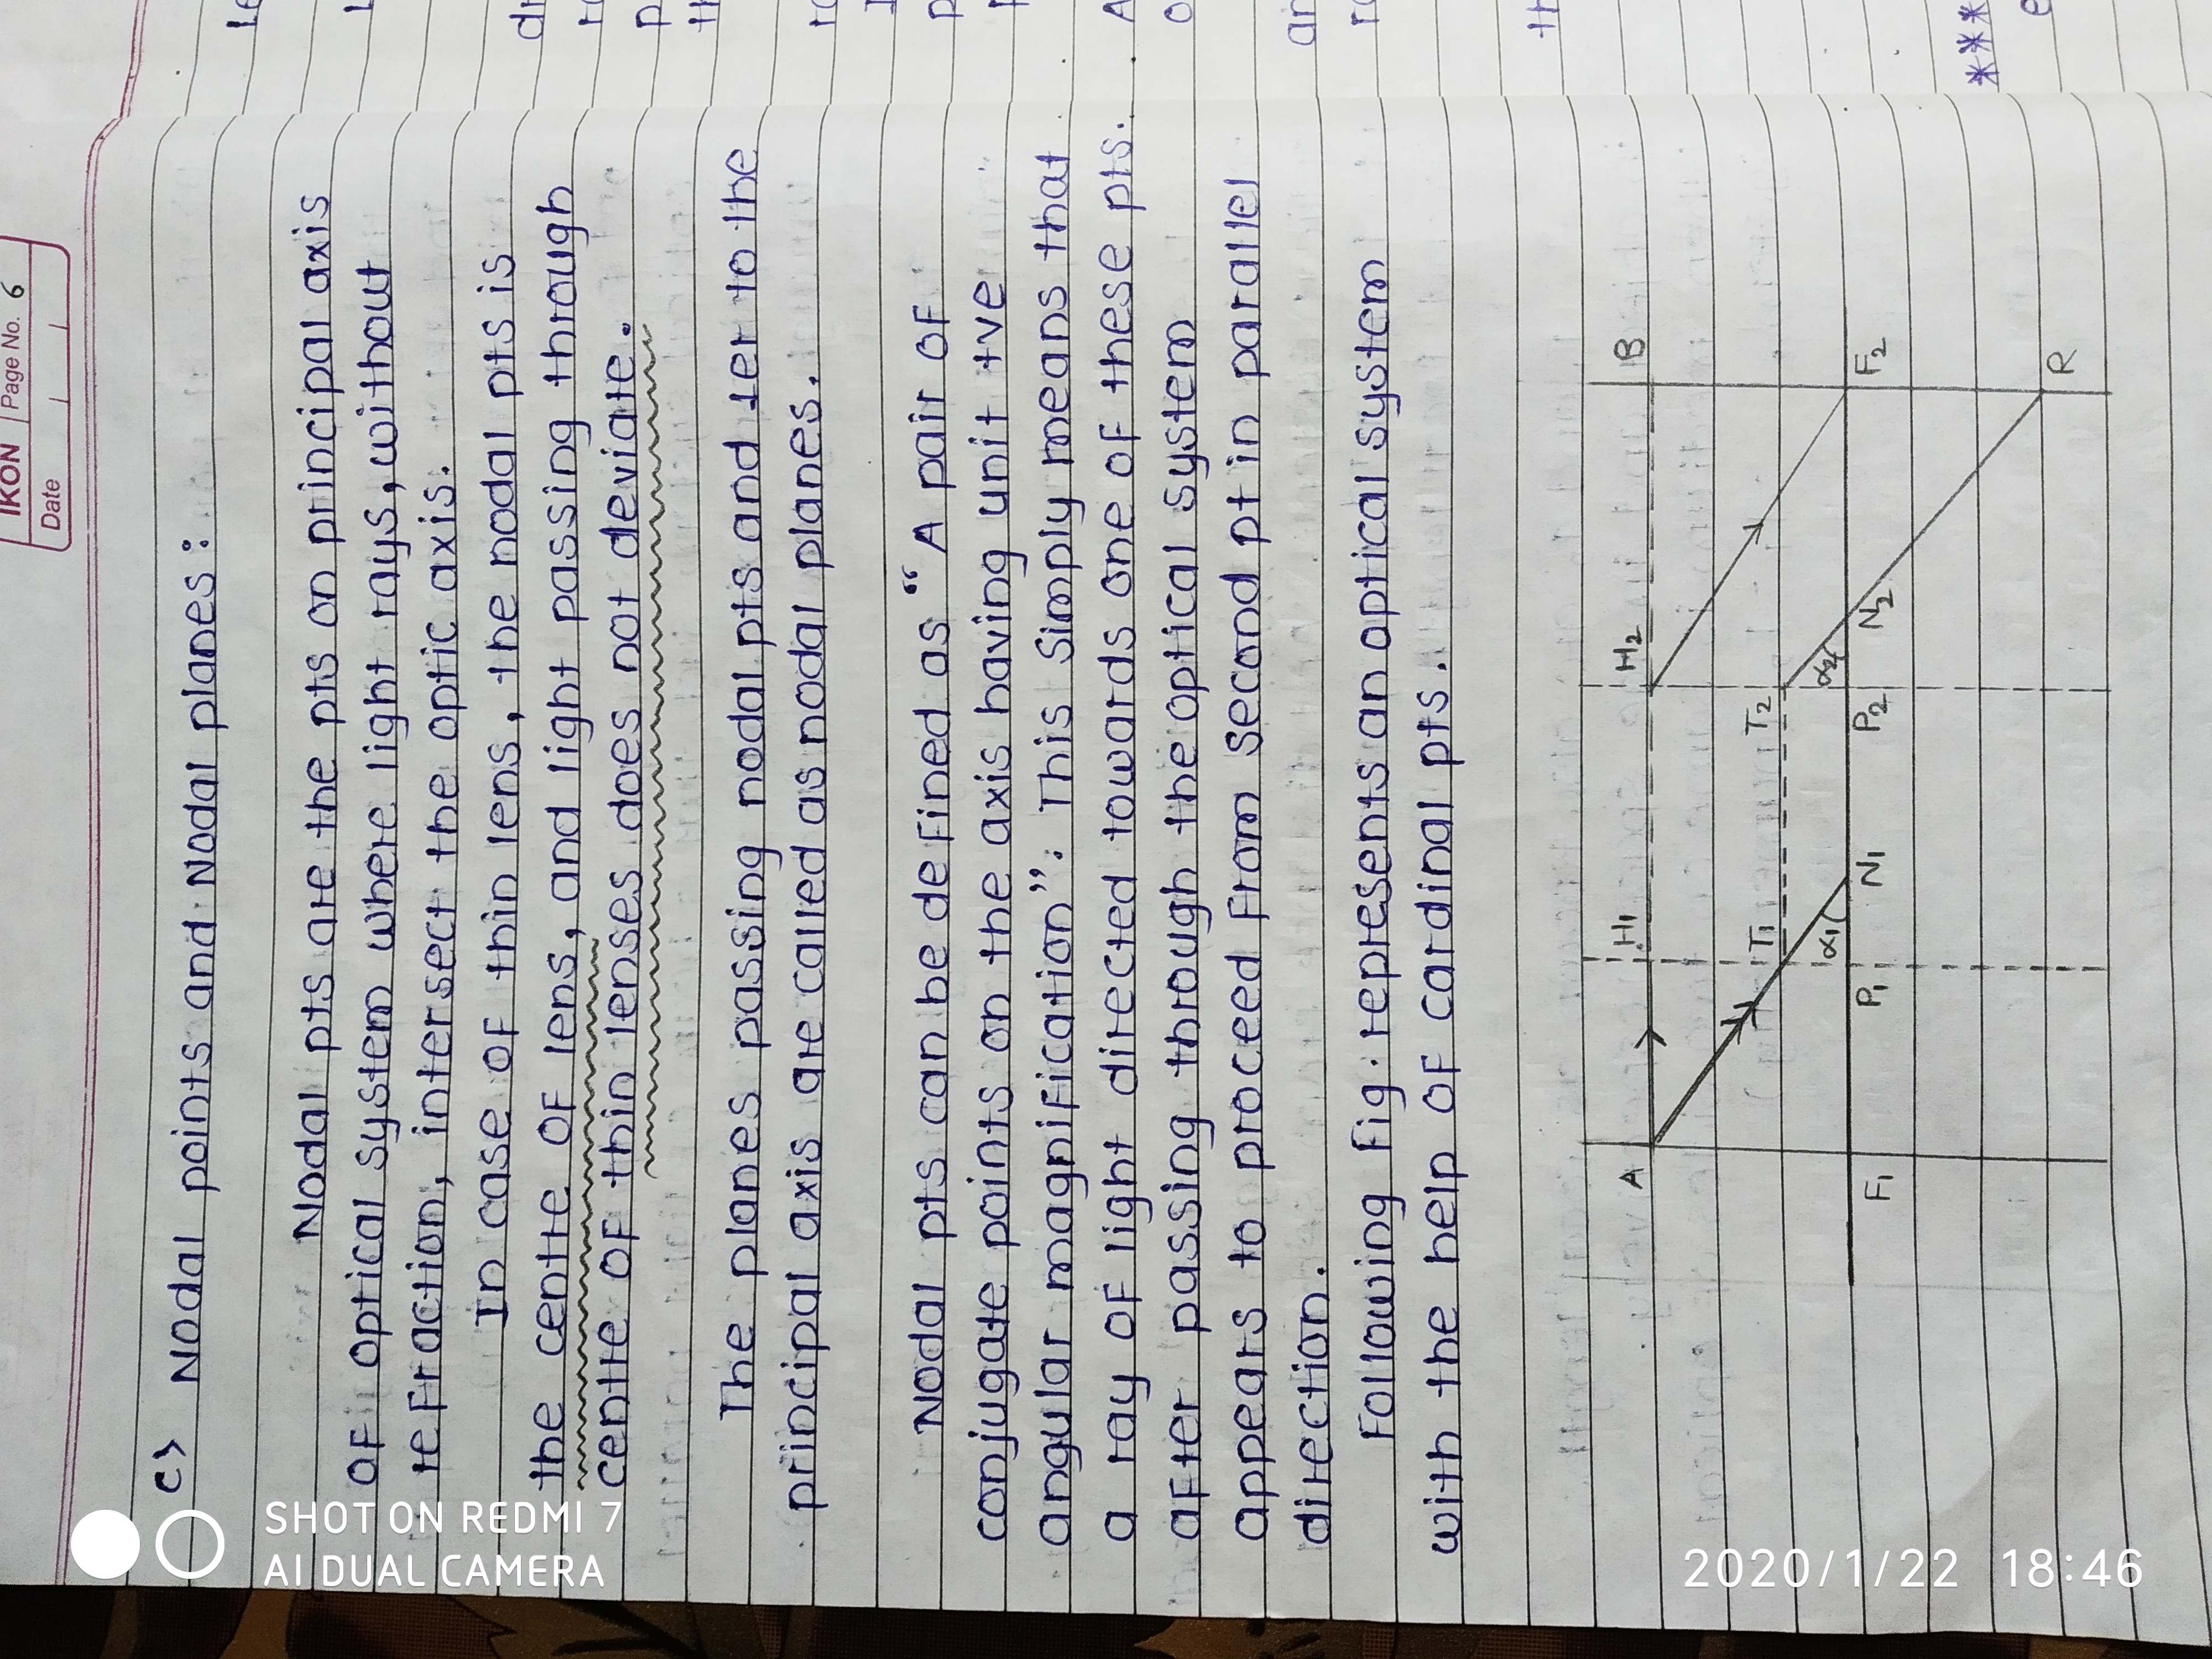 IKON Page No. 6
Date
c> Nodal points and Nodal planes :
Nodal pts are the pts on principal axis
of optical system where light rays, without
refraction, intersect the optic axis.
In case of thin lens, the nodal pts is
the centre of lens, and light passing through
centre of thin lenses does not deviate.
The planes passing nodal pts and ⊥er to the
principal axis are called as nodal planes.
Nodal pts can be defined as “ A pair of
conjugate points on the axis having unit +ve
angular magnification”. This simply means that
a ray of light directed towards one of these pts.
after passing through the optical system
appears to proceed from second pt in parallel
direction.
Following fig. represents an optical system
with the help of cardinal pts.
A H1 H2 B
T1 T2
α1 α2
F1 P1 N1 P2 N2 F2
R
SHOT ON REDMI 7
AI DUAL CAMERA
2020/1/22 18:46